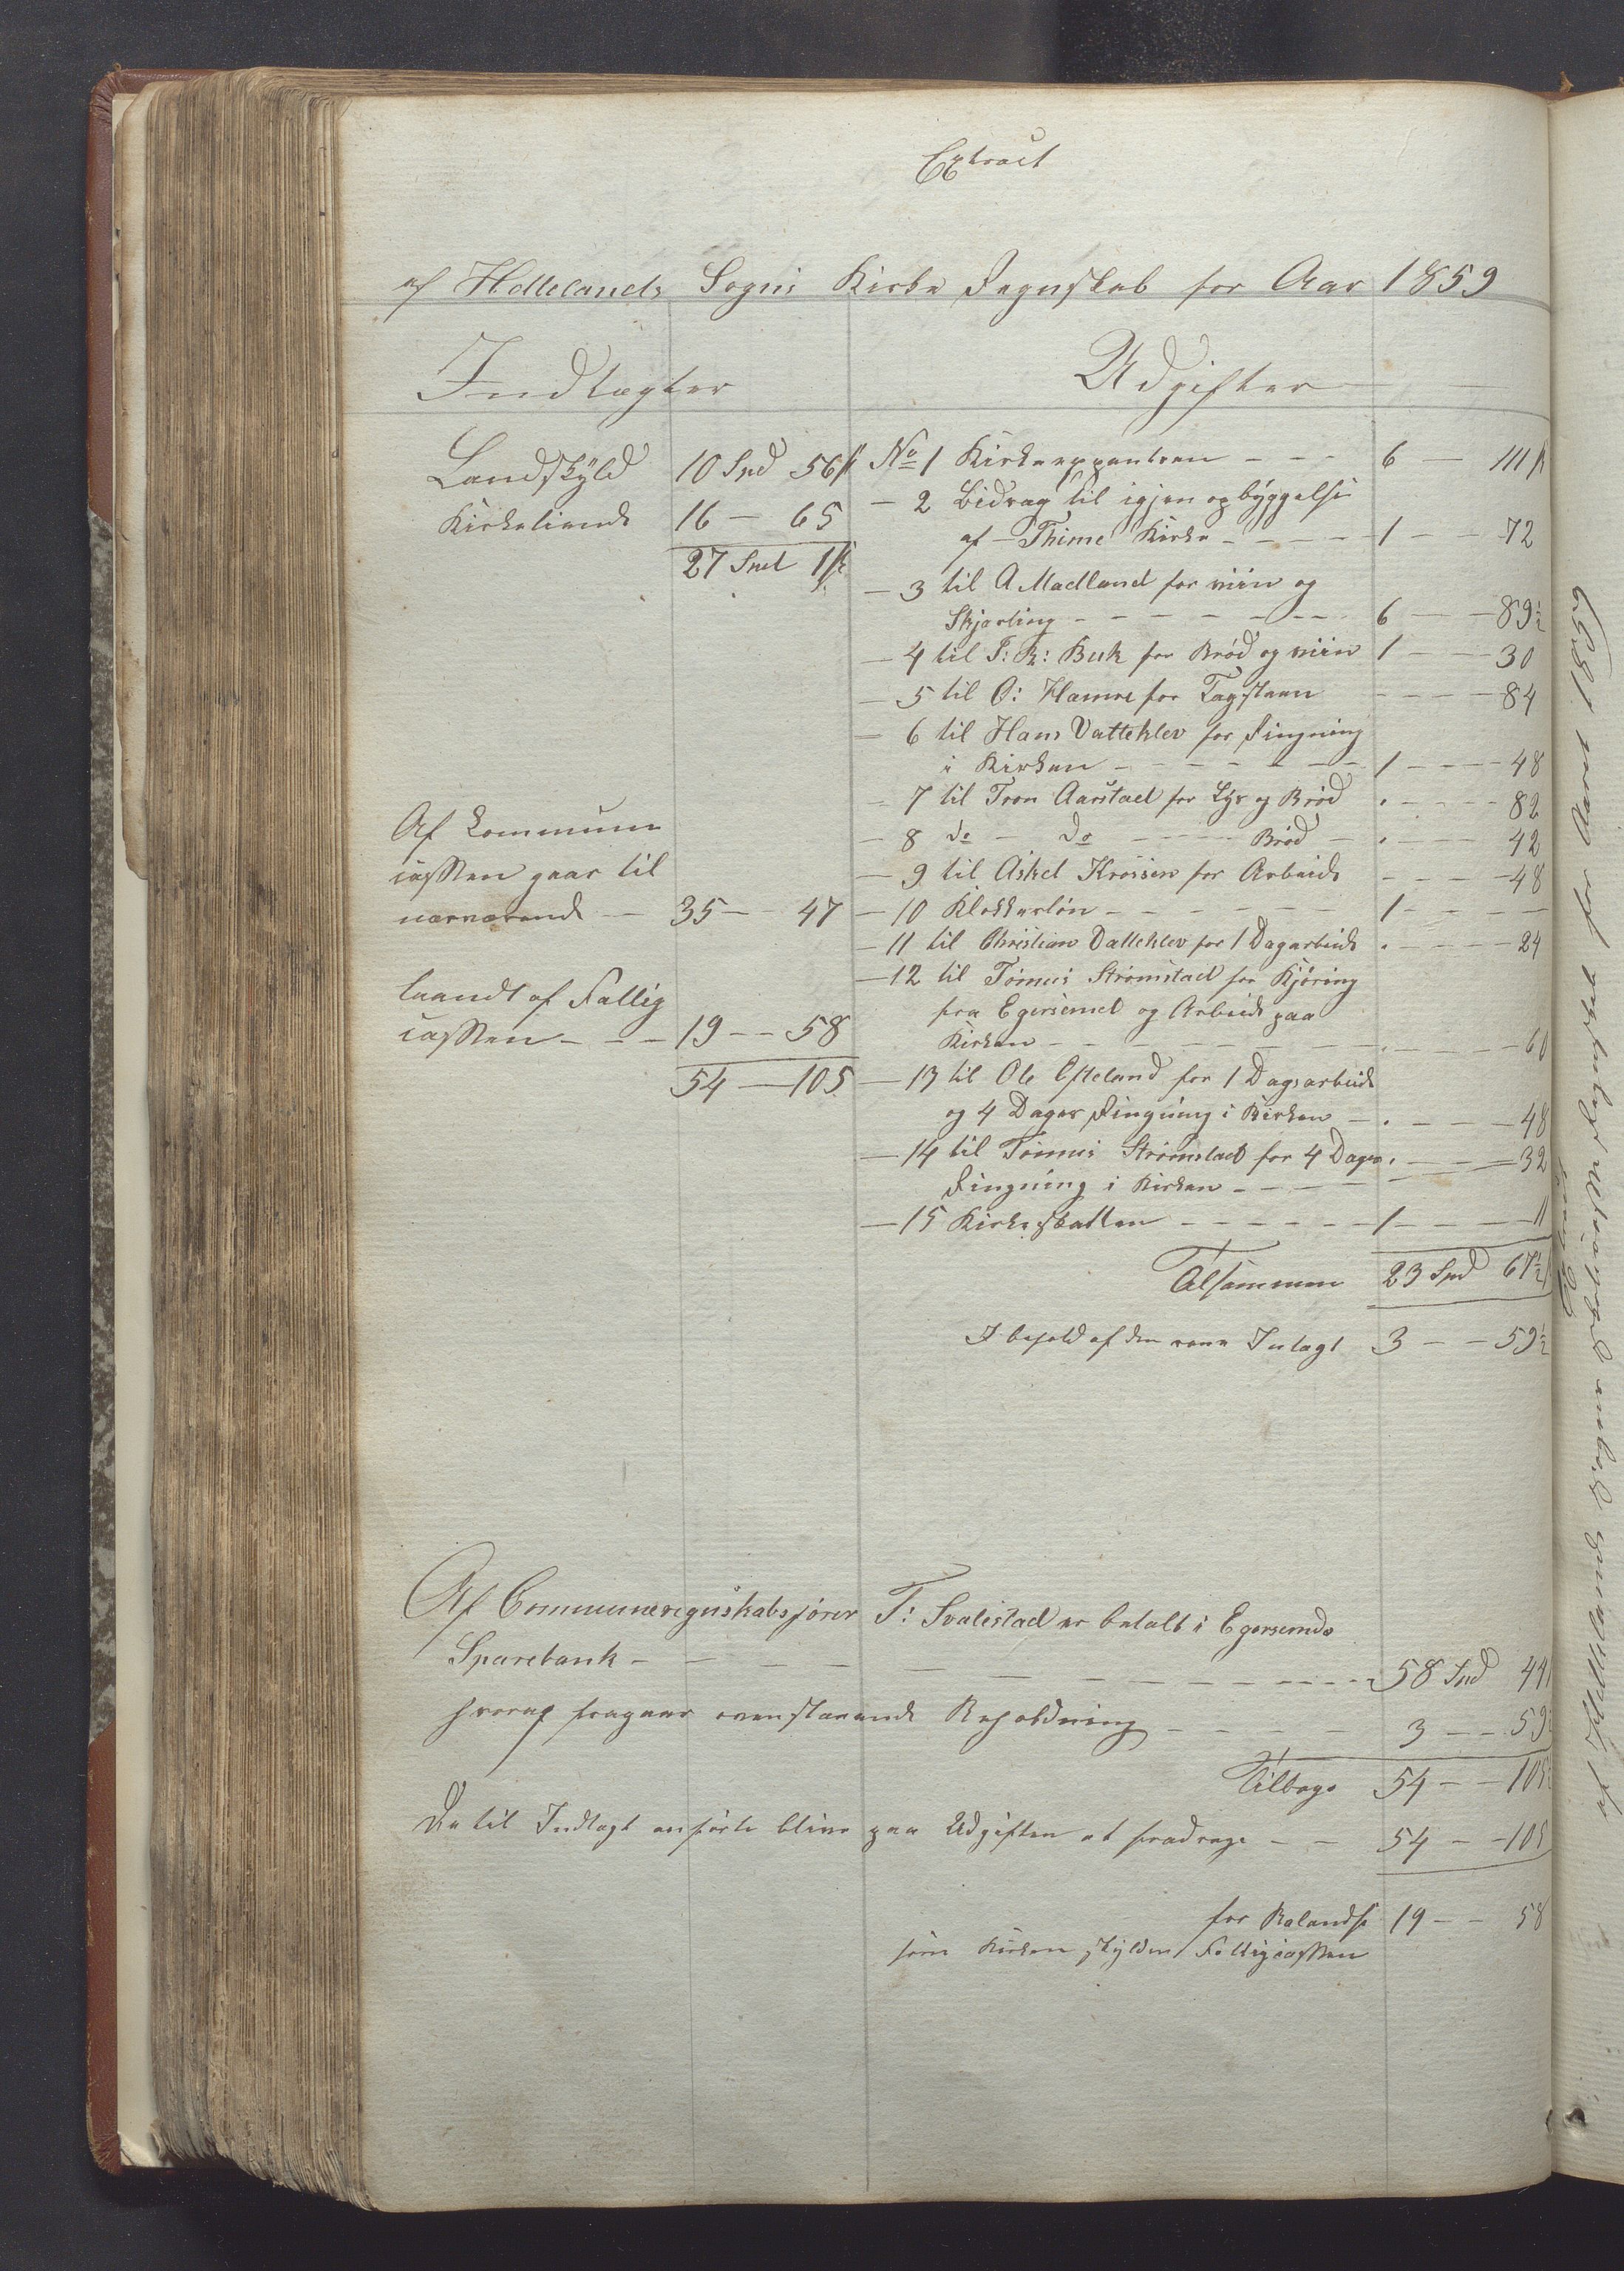 Extract
af Hellelands Sogns Kirke Regnskab for Aar 1859
Indtægter
Udgifter
Landskyld 10 Spd 56 s
Kirketiende 16 — 65
27 Spd 1 s
No 1 Kirkerepparation - - - 6 — 111 s
— 2 Bidrag til igjen opbÿggelse
af Thime Kirke - - - - 1 — 72
— 3 til A Madland for viin og
Skjorting - - - - - - 6 — 89½
— 4 til T: R: Buk for Brød og viin 1 — 30
— 5 til O: Hamre for Tagsteen - - - - 84
— 6 til Hans Vatteklev for Ringning
i Kirken - - - - - - 1 - - - 48
— 7 til Tron Aarstad for Lÿs og Brød . - - - 82
— 8 do — do - - - Brød - . - - - 42
— 9 til Askel Krossen for Arbeide - - - - 48
— 10 Klokkerløn - - - - - - 1 - - - -
— 11 til Christian Vatteklev for 1 Dagarbeide . - - - 24
— 12 til Tønnes Strømstad for Kjøring
fra Egersund og Arbeide paa
Kirken - - - - - - . - - - 60
— 13 til Ole Efteland for 1 Dagsarbeide
og 4 Dages Ringning i Kirken - . - - - 48
— 14 til Tønnes Strømstad for 4 Dages . - - - 32
Ringning i Kirken - - - -
— 15 Kirkeskatten - - - - - 1 - - - 11
Tilsammen 23 Spd 67½
I behold af den rene Intægt 3 — 59½
Af Commune
cassen gaar til
nærværende — 35 — 47
laandt af Fattig
cassen - - - 19 — 58
54 — 105
Af Communeregnskabsfører T: Svalestad er betalt i Egersunds
Sparebank - - - - - - - - 58 Spd 44
hvoraf fragaar ovenstaaende Beholdning - - - - 3 — 59
Tilbage 54 — 105
De til Indtægt anførte blive paa Udgiften at fradrage - - 54 — 105
for Balandse 19 — 58
som Kirken skÿlder Fattigcassen
af Hellelands Sogns Regnskab for Aaret 1859